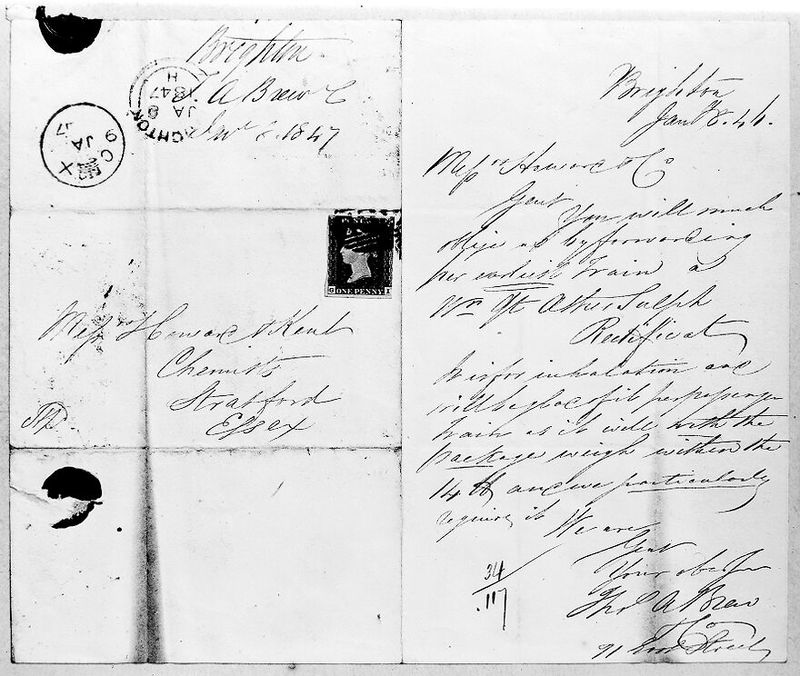 Brighton
T. A Brew & C
Jan 8. 1847
BRIGHTON
JA 8
1847
H
CX
9 JA
47
ONE PENNY
Messrs Howard & Kent
Chemists
Stratford
Essex
Brighton
Jany 8. 46.
Messrs Howard & Co
Gent
You will much
oblige us by forwarding
per earliest train a
Wn Qt Æther Sulph
Rectificat
It is for inhalation and
will be glad of it per passenger
train as it will with the
package weigh within the
14 lb and we particularly
require it We are
Gent
Your obe
Thos A Brew
& Co
91 Street
34
117